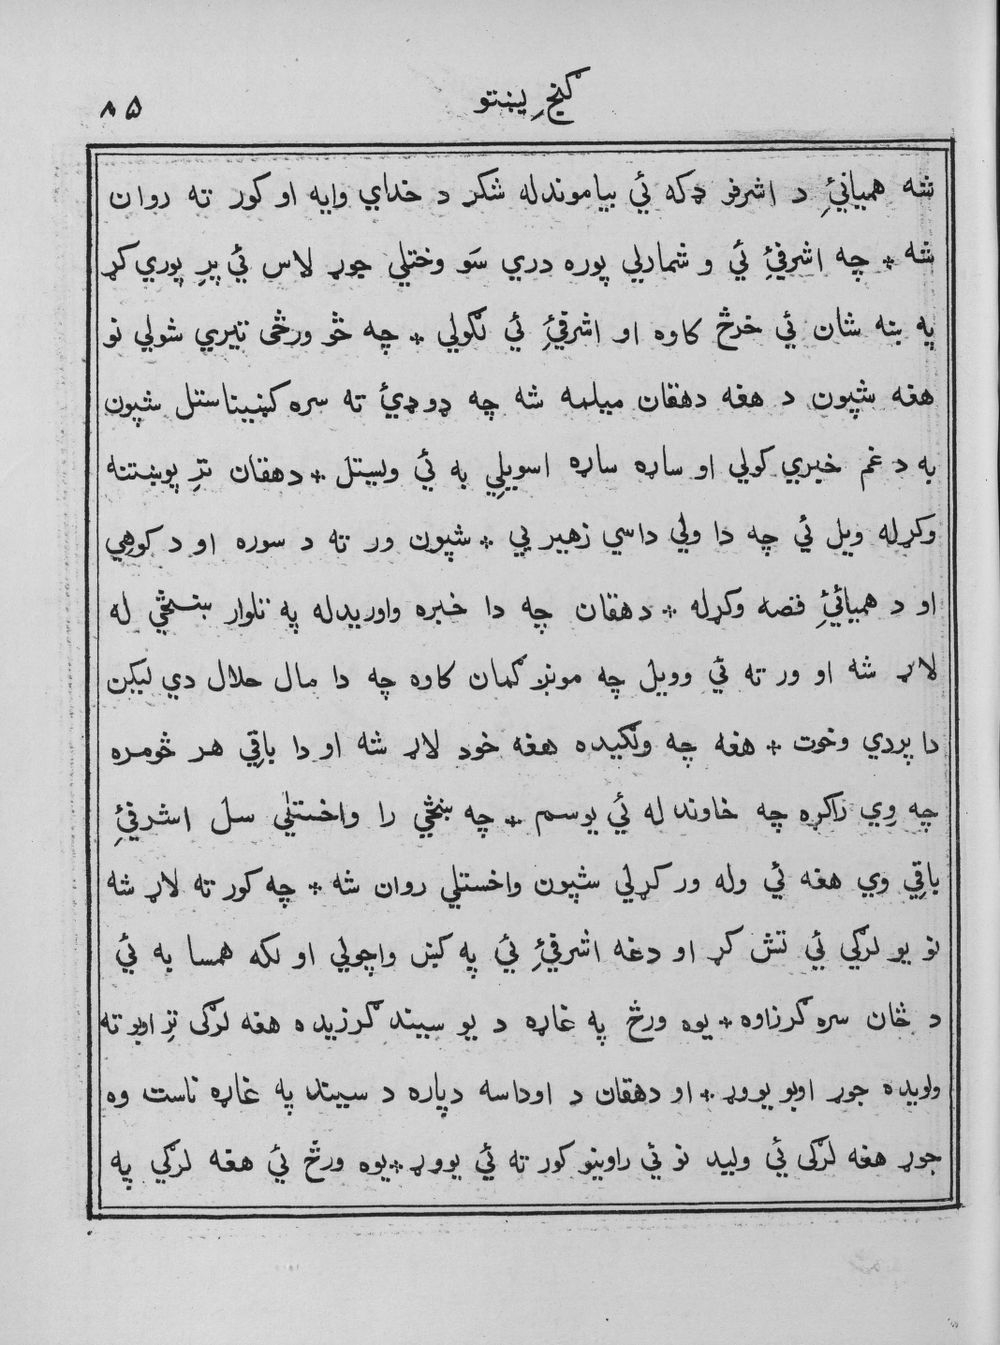 گنجِ پښتو
۸۵
شه همیانئِ د اشرفو ډکه ئي بیاموندله شکر د خداي وایه او کور ته روان
شه * چه اشرفئِ ئي و شمارلي پوره دري سَو وختلي جوړ لاس ئي پرِ پوري کړ
په ښه شان ئي خرڅ کاوه او اشرفئِ ئي لګولي * چه څو ورځی تیري شولي نو
هغه شپون د هغه دهقان میلمه شه چه ډوډئ ته سره کښیناستل شپون
به د غم خبري کولي او ساړه ساړه اسویلي به ئي ویستل * دهقان ترِ پوښتنه
وکړله ویل ئي چه دا ولي داسي زهیر یي * شپون ور ته د سوره او د کوهي
او د همیانئِ قصه وکړله * دهقان چه دا خبره واوریدله په تلوار ښځي له
لاړ شه او ور ته ئي وویل چه مونږ ګمان کاوه چه دا مال حلال دي لیکن
دا پردي وخوت * هغه چه ولګیده هغه خود لاړ شه او دا باقي هر څومره
چه وِي راکړه چه خاوند له ئي یوسم * چه ښځي را واخستلي سل اشرفئِ
باقي وي هغه ئي وله ور کړلي شپون واخستلي روان شه * چه کور ته لاړ شه
نو یو لرګي ئي تش کړ او دغه اشرفئِ ئي په کښ واچولي او لکه همسا به ئي
د ځان سره ګرزاوه * یوه ورځ په غاړه د یو سیند ګرزیده هغه لرګی ترِ اوبو ته
ولویده جوړ اوبو یووړ * او دهقان د اوداسه دپاره د سیند په غاړه ناست وه
جوړ هغه لرګی ئي ولید نو ئي راوینو کور ته ئي یووړ * یوه ورځ ئي هغه لرګي په